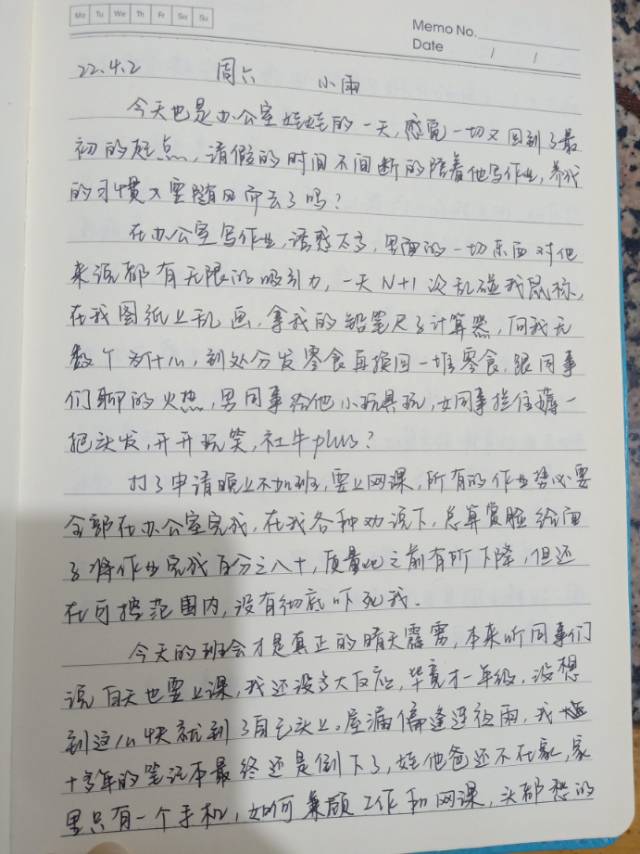 Mo Tu We Th Fr Sa Su
Memo No.
Date / /
22.4.2 周六 小雨
今天也是办公室娃娃的一天,感觉一切又回到了最
初的起点,请假的时间不间断的陪着他写作业,养成
的习惯又要随日而去了吗?
在办公室写作业,诱惑太多,里面的一切东西对他
来说都有无限的吸引力,一天N+1次乱碰我鼠标,
在我图纸上乱画,拿我的铅笔尺子计算器,问我无
数个为什么,到处分发零食再换回一堆零食,跟同事
们聊的火热,男同事给他小玩具玩,女同事拦住薅一
把头发,开开玩笑,社牛plus?
打了申请晚上不加班,要上网课,所有的作业势必要
全部在办公室完成,在我各种劝说下,总算赏脸给面
了将作业完成百分之八十,质量比之前有所下降,但还
在可控范围内,没有彻底吓死我.
今天的班会才是真正的晴天霹雳,本来听同事们
说白天也要上课,我还没多大反应,毕竟才一年级,没想
到这么快就到了自己头上。屋漏偏逢连夜雨,我
十多年的笔记本最终还是倒下了,娃他爸还不在家,家
里只有一个手机,如何兼顾工作和网课,头都愁的